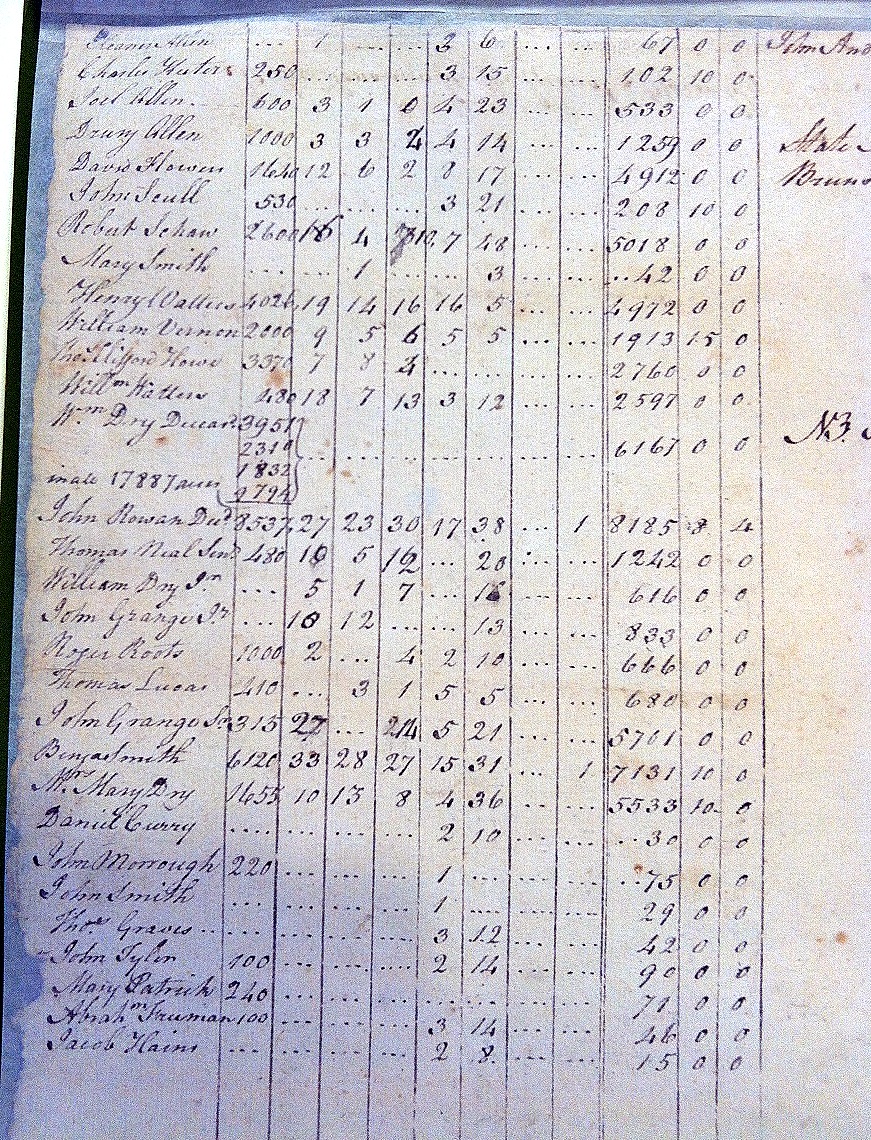 Eleanor Allen ... 1 ... ... 3 6 ... ... 67 0 0 John And
Charles Hester 250 ... ... ... 3 15 ... ... 102 10 0
Joel Allen 600 3 1 0 4 23 ... ... 533 0 0
Drury Allen 1000 3 3 4 14 ... ... 1259 0 0 State
David Flowers 1640 12 6 2 8 17 ... ... 4912 0 0 Bruns
John Scull 530 ... ... ... 3 21 ... ... 208 10 0
Robert Schaw 2600 16 4 7 48 ... ... 5018 0 0
Mary Smith ... ... 1 ... ... 3 ... ... ..42 0 0
Henry Watters 4026 19 14 16 16 5 ... ... 4972 0 0
William Vernon 2000 9 5 6 5 5 ... ... 1913 15 0
Thos. Clifford Howe 3370 7 8 4 ... ... ... ... 2760 0 0
Willm Watters 480 18 7 13 3 12 ... ... 2597 0 0
Wm Dry Deceasd. 3951
2310 ... ... ... ... ... ... ... 6167 0 0 NB.
1832
in all 17887 acres 9794
John Rowan Decd 8537 27 23 30 17 38 ... 1 8185 8 4
Thomas Neal Senr 480 10 5 12 ... 20 ... ... 1242 0 0
William Dry Jn ... 5 1 7 ... 16 ... ... 616 0 0
John Grange Jr ... 10 12 ... ... 13 ... ... 833 0 0
Roger Roots 1000 2 ... 4 2 10 ... ... 666 0 0
Thomas Lucas 410 ... 3 1 5 5 ... ... 680 0 0
John Grange Sn 315 27 ... 24 5 21 ... ... 5701 0 0
Benja Smith 6120 33 28 27 15 31 ... 1 7131 10 0
Mrs. Mary Dry 1655 10 13 8 4 36 ... ... 5533 10 0
Daniel Curry .... ... ... ... 2 10 ... ... ..30 0 0
John Morrough 220 ... ... ... 1 ... ... ... ..75 0 0
John Smith ... ... ... ... 1 ... ... ... 29 0 0
Thos. Graves ... ... ... ... 3 12 ... ... 42 0 0
John Tyler 100 ... ... ... 2 14 ... ... 90 0 0
Mary Patrick 240 ... ... ... ... ... ... ... 71 0 0
Abrahm Freeman 100 ... ... ... 3 14 ... ... 46 0 0
Jacob Hains ... ... ... ... 2 8 ... ... 15 0 0